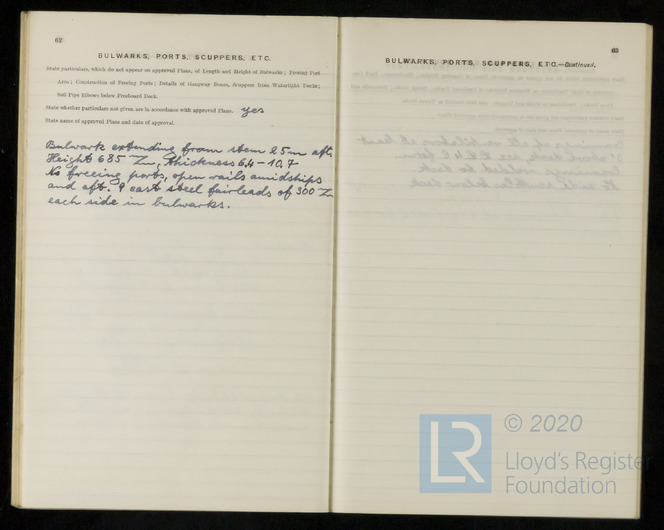 62
BULWARKS, PORTS, SCUPPERS, ETC.
State particulars, which do not appear on approved Plans, of Length and Height of Bulwarks; Freeing Port
Area; Construction of Freeing Ports; Details of Gangway Doors, Scuppers from Watertight Decks;
Soil Pipe Elbows below Freeboard Deck.
State whether particulars not given are in accordance with approved Plans. yes
State name of approved Plans and date of approval.
Bulwark extending from stem 25m aft,
Height 685 Zm, thickness 6,4-10,7
No freeing ports, open rails amidships
and aft. 9 cast steel fairleads of 300 Zm
each side in bulwarks.
63
BULWARKS, PORTS, SCUPPERS, ETC.—Continued.
LR
© 2020
Lloyd's Register
Foundation